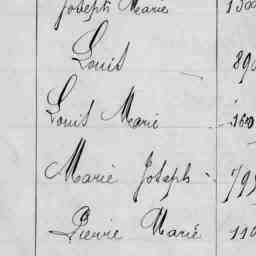 Joseph Marie
Louis 89
Louis Marie 1600
Marie Joseph 79
Pierre Marie 110